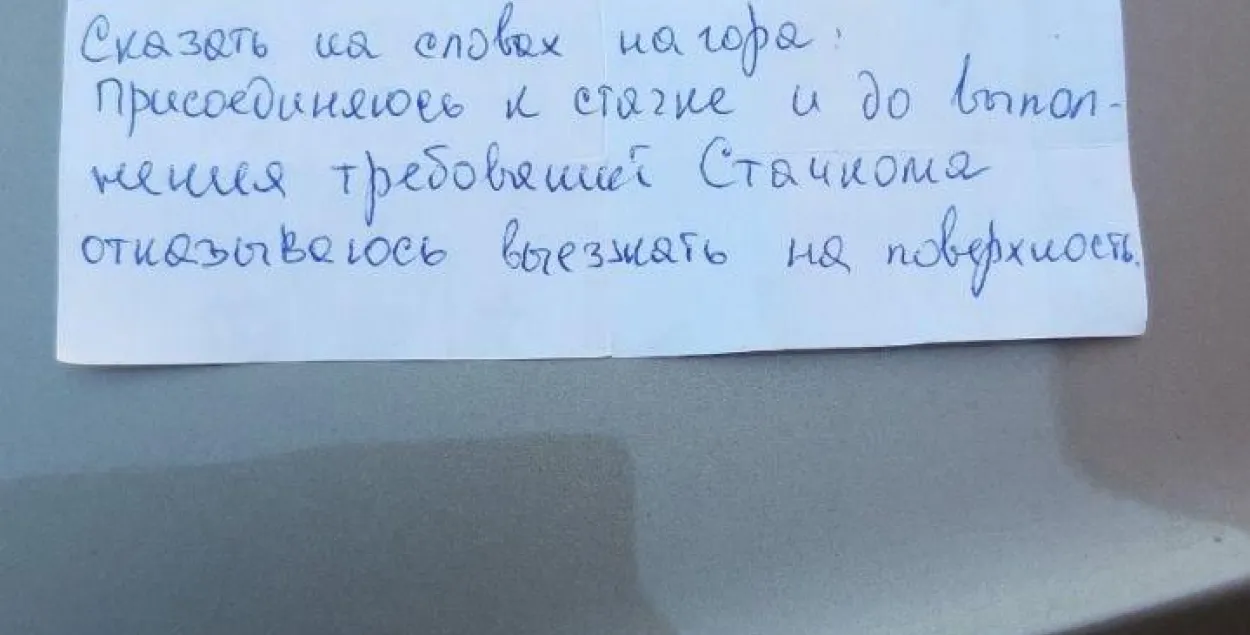 Сказать на словах на гора:
Присоединяюсь к стачке и до выпол-
нения требований Стачкома
отказываюсь выезжать на поверхность.